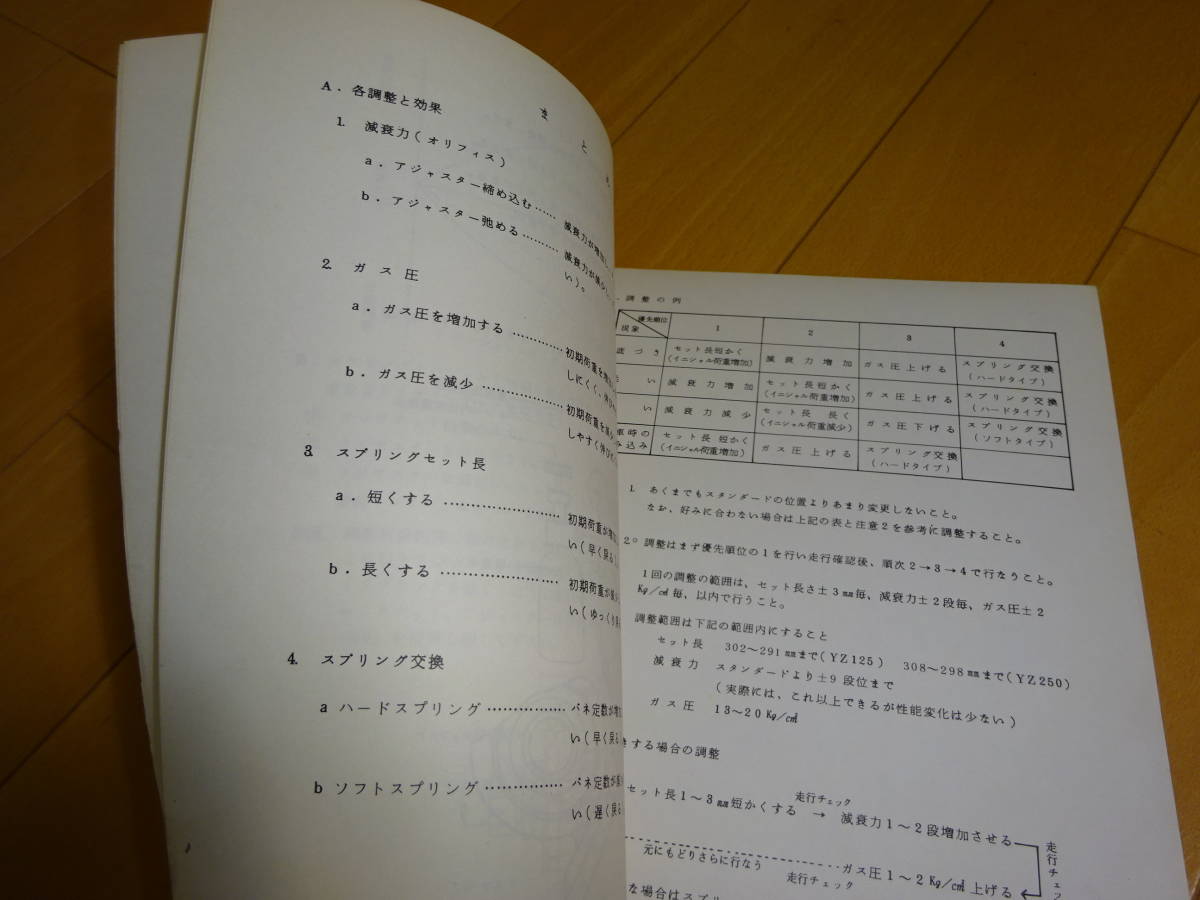 まと
A. 各調整と効果
1. 減衰力(オリフィス)
a. アジャスター締め込む…… 減衰力が増加し
b. アジャスター弛める………… 減衰力が減少し
い)。
2. ガス圧
a. ガス圧を増加する…………… 初期荷重を増
しにくく、伸び
b. ガス圧を減少……………… 初期荷重を減
しやすく伸び
3. スプリングセット長
a. 短くする…………………… 初期荷重が増
い(早く戻る
b. 長くする…………………… 初期荷重が減
い(ゆっくり
4. スプリング交換
a ハードスプリング…………… バネ定数が増
い(早く戻る
b ソフトスプリング…………… バネ定数が
い(遅く戻
調整の例
優先順位 現象 1 2 3 4
底づき セット長短かく(イニシャル荷重増加) 減衰力増加 ガス圧上げる スプリング交換(ハードタイプ)
い 減衰力増加 セット長短かく(イニシャル荷重増加) ガス圧上げる スプリング交換(ハードタイプ)
い 減衰力減少 セット長 長く(イニシャル荷重減少) ガス圧下げる スプリング交換(ソフトタイプ)
車時のみ込み セット長 短かく(イニシャル荷重増加) ガス圧上げる スプリング交換(ハードタイプ)
1. あくまでもスタンダードの位置よりあまり変更しないこと。
なお、好みに合わない場合は上記の表と注意2を参考に調整すること。
2.° 調整はまず優先順位の1を行い走行確認後、順次2→3→4で行なうこと。
1回の調整の範囲は、セット長さ±3㎜毎、減衰力±2段毎、ガス圧±2
Kg/c㎡毎、以内で行うこと。
調整範囲は下記の範囲内にすること
セット長 302~291㎜まで(YZ125) 308~298㎜まで(YZ250)
減衰力 スタンダードより±9段位まで
(実際には、これ以上できるが性能変化は少ない)
ガス圧 13~20Kg/c㎡
きする場合の調整
セット長1~3㎜短かくする → 走行チェック 減衰力1~2段増加させる
走行チェッ
元にもどりさらに行なう 走行チェック ガス圧1~2Kg/c㎡上げる
な場合はスプ